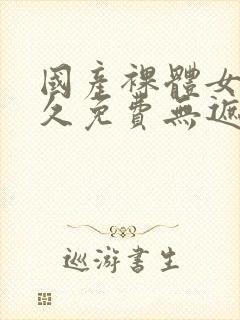 國產裸體女
久免費無遮
巡游書生